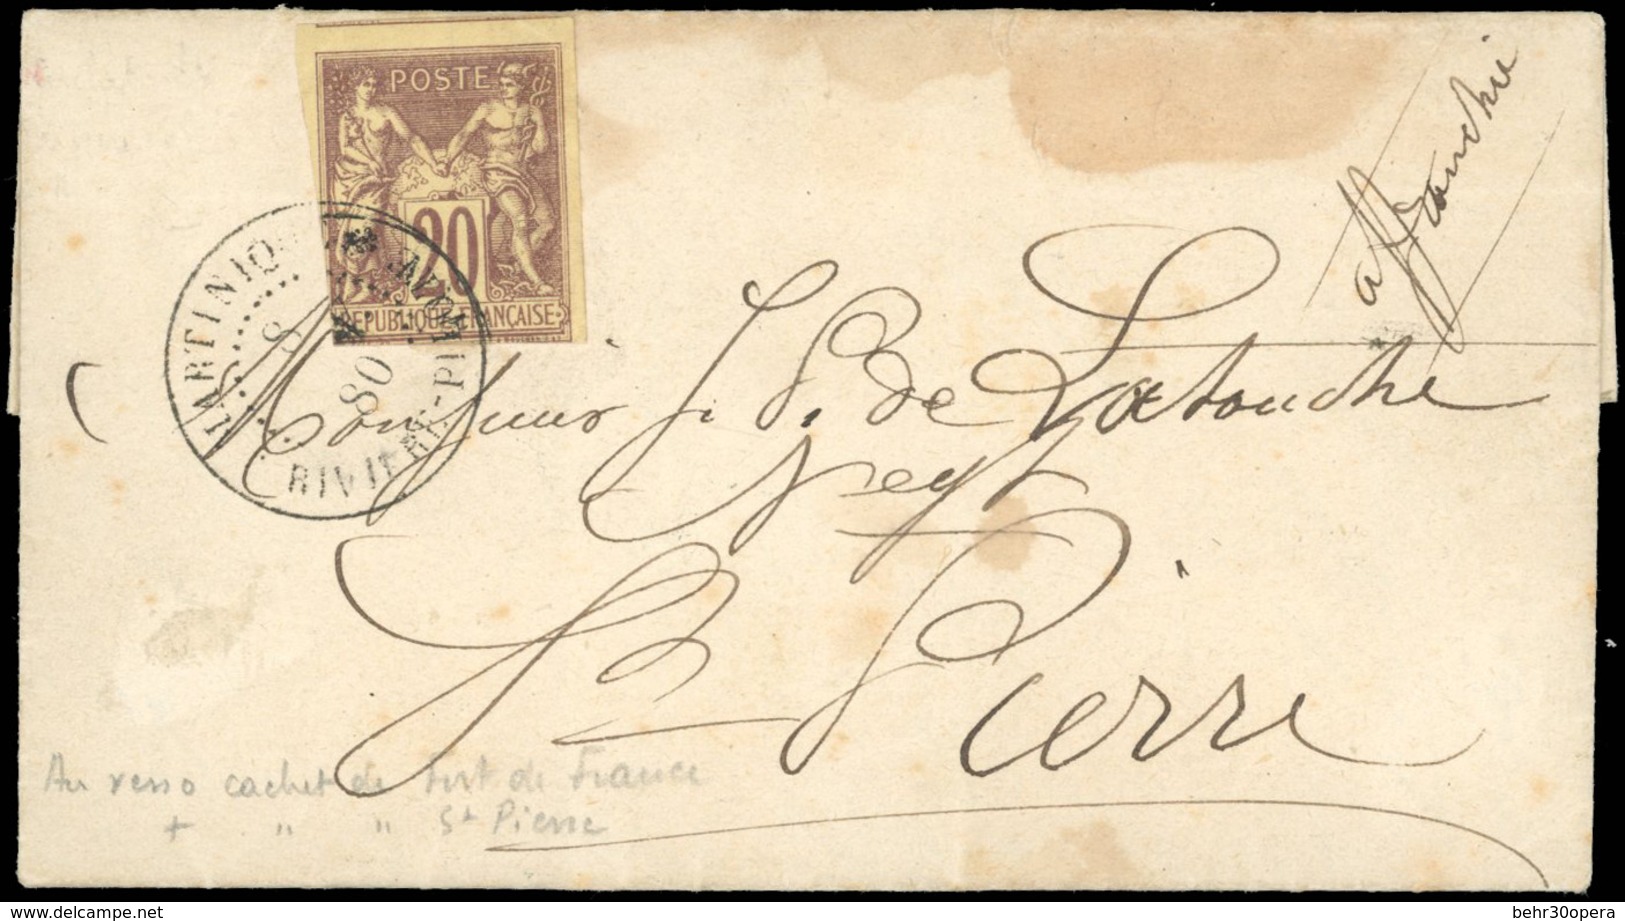 POSTE
20
REPUBLIQUE FRANÇAISE
MARTINIQ
8
80
RIVIERE-PI
affranchie
Monsieur
de Latouche
St Pierre
Au verso cachet de Fort de France
+ " " St Pierre
behr30opera